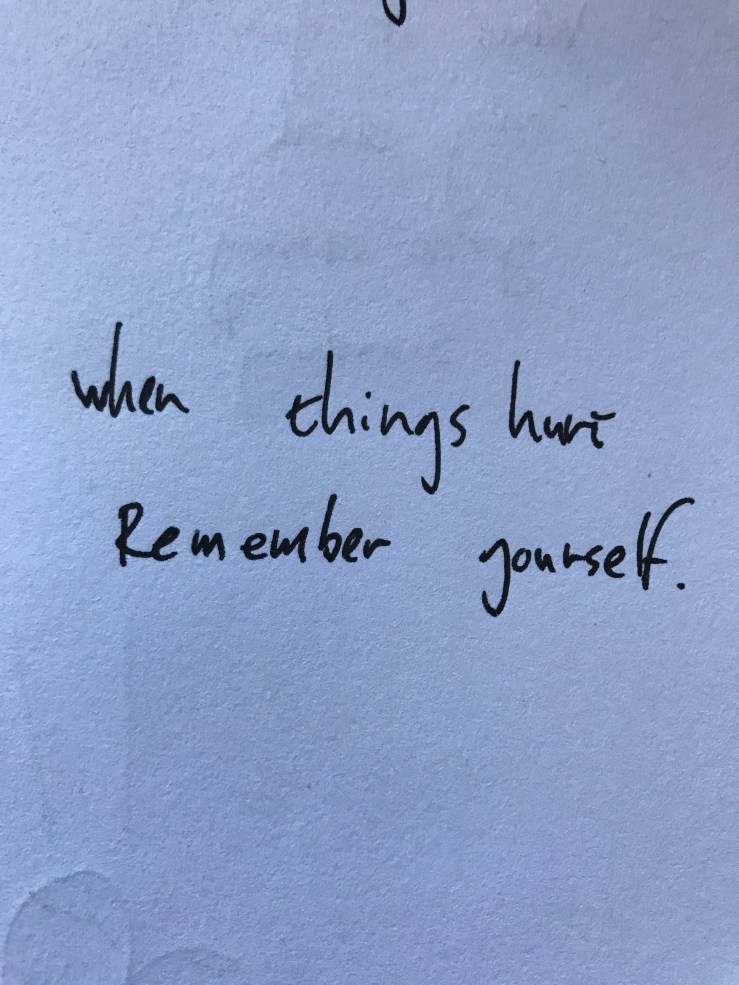 when things hurt
Remember yourself.